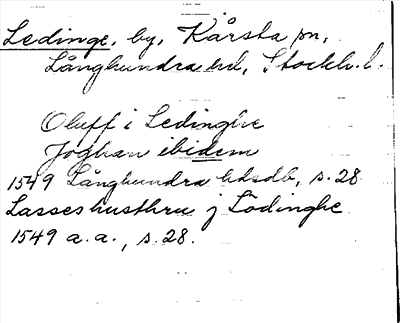 Ledinge, by, Kårsta sn,
Långhundra hd, Stockh. l.
Oluff i Ledinghe
Joghan ibidem
1549 Långhundra hdsdb, s. 28.
Lasses husthru j Lödinghe
1549 a.a., s. 28.